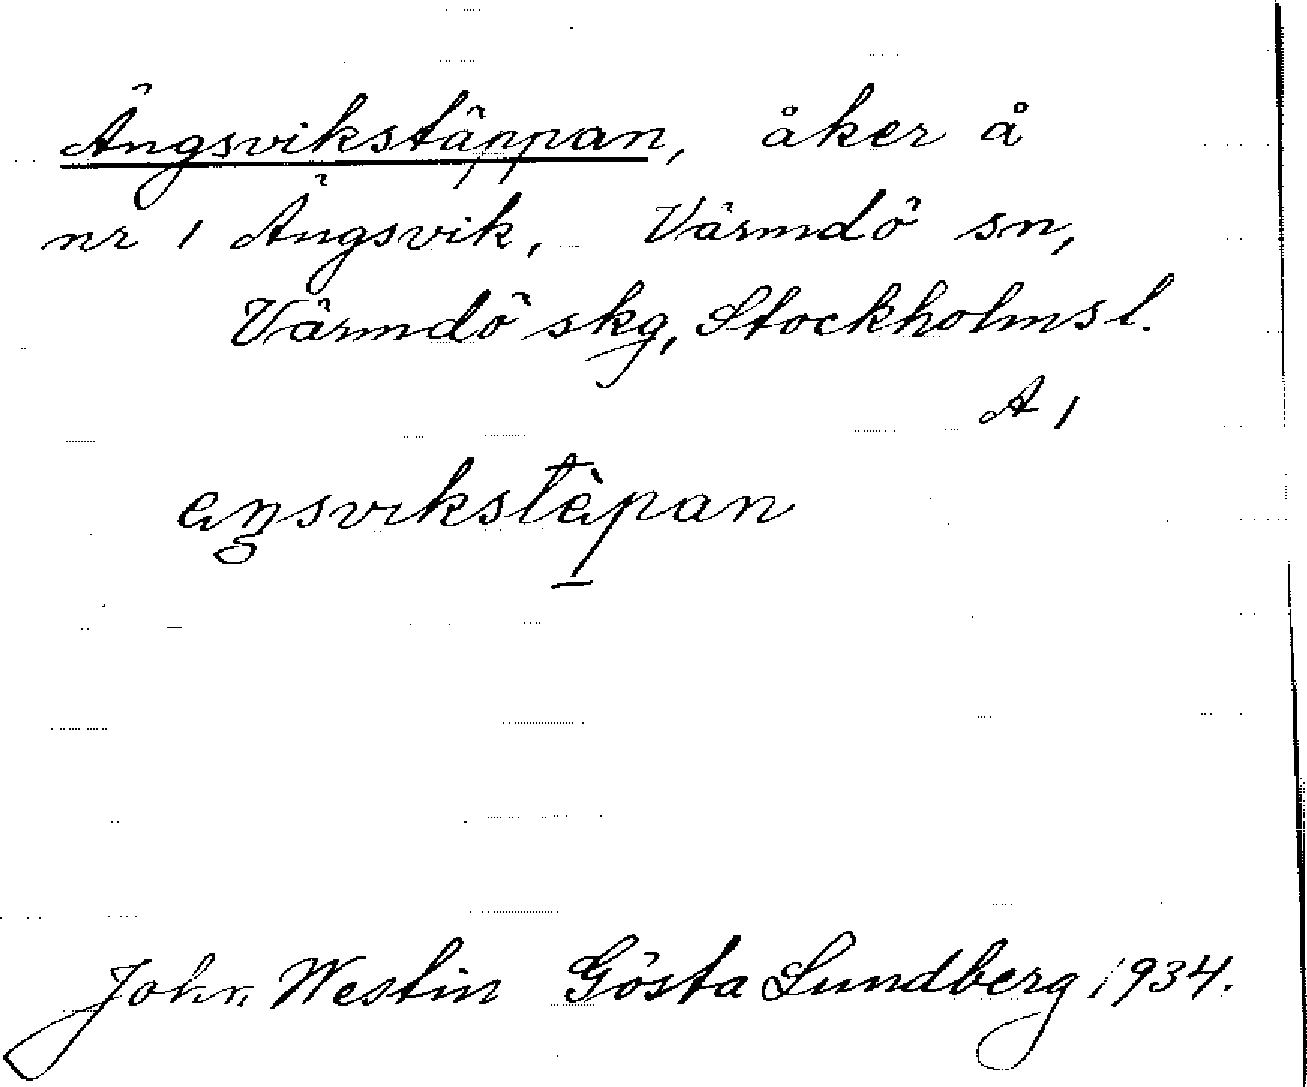 Ängsvikstäppan, åker å
nr 1 Ängsvik, Värmdö sn,
Värmdö skg, Stockholms l.
A 1
eŋsvikstɛ̀pan
John Westin Gösta Lundberg 1934.